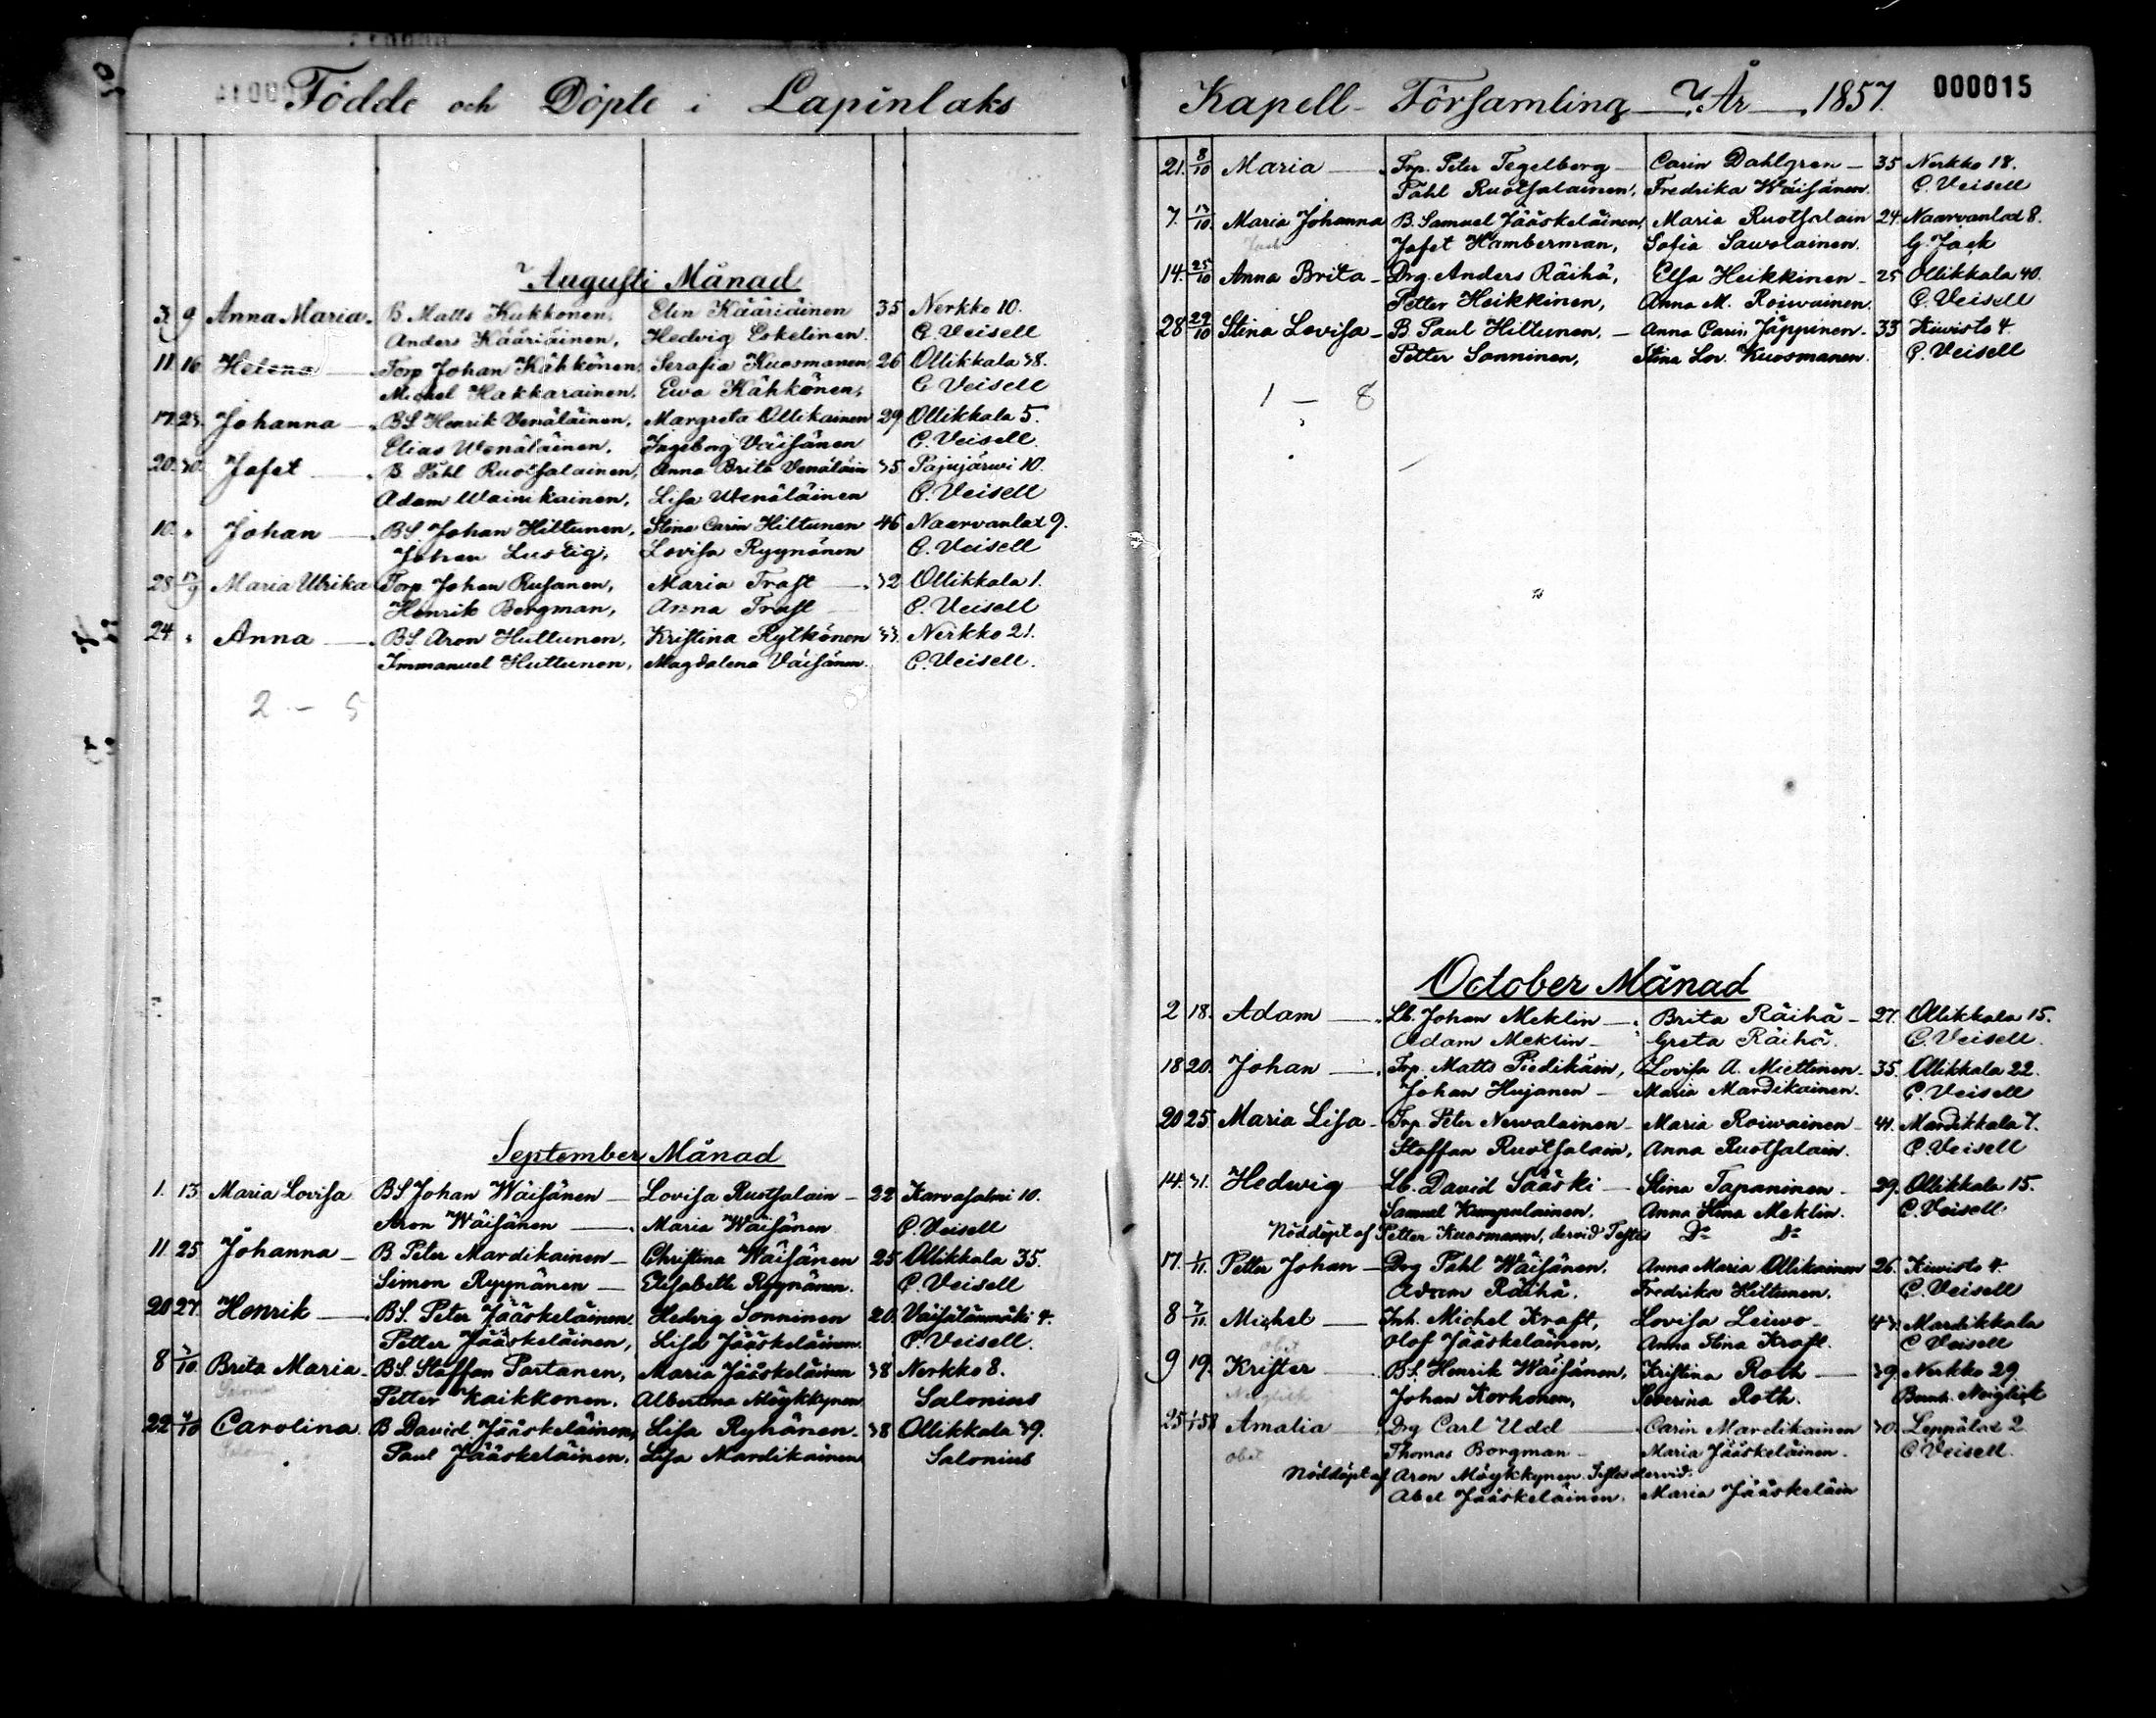 Födde och Döpte i Lapinlaks
Augusti Månad
3. 9 Anna Maria B. Matts Kukkonen, Elin Kääriäinen 35 Nerkko 10.
Anders Kääriäinen, Hedvig Eskelinen. C. Veisell
11. 16. Helena Torp Johan Kähkönen, Serafia Kuosmanen 26 Ollikkala 38.
Michel Hakkarainen, Ewa Kähkönen, C Veisell
17. 23. Johanna BS Henrik Venäläinen, Margreta Ollikainen 29 Ollikkala 5.
Elias Wenäläinen, Ingeborg Väisänen C. Veisell
20. 30. Jafet B. Påhl Ruotsalainen, Anna Brita Venäläin 35 Pajujärwi 10.
Adam Wainikainen, Lisa Wenäläinen C. Veisell
10. " Johan BS Johan Hiltunen, Stina Carin Hiltunen 46 Naarvanlax 9.
Johan Lustig, Lovisa Ryynänen C. Veisell
28 13/9 Maria Ulrika Torp Johan Rusanen, Maria Trast 32 Ollikkala 1.
Henrik Bergman, Anna Trast C. Veisell
24 " Anna BS. Aron Huttunen, Kristina Rytkönen 33. Nerkko 21.
Immanuel Huttunen, Magdalena Väisänen. C. Veisell.
2 - 5
September Månad
1. 13 Maria Lovisa BS Johan Wäisänen Lovisa Ruotsalain 22 Karvasalmi 10.
Aron Wäisänen Maria Wäisänen C. Veisell
11. 25 Johanna B Peter Mardikainen Christina Wäisänen 25 Ollikkala 35.
Simon Ryynänen Elisabeth Ryynänen. C. Veisell
20 27. Henrik BS. Peter Jääskeläinen Hedvig Sonninen 20. Väisälänmäki 4.
Petter Jääskeläinen, Lisa Jääskeläinen. C. Veisell.
8 3/10. Brita Maria BS. Staffan Partanen, Maria Jääskeläinen 38 Nerkko 8.
Salonius Petter Kaikkonen. Albertina Möykkynen Salonius
22 4/10 Carolina. B David Jääskeläinen, Lisa Ryhänen. 38 Ollikkala 39.
Paul Jääskeläinen, Lisa Mardikainen Salonius
Kapell-Församling År 1857. 000015
21. 8/10 Maria Trp. Peter Tegelberg Carin Dahlgren 35 Nerkko 18.
Påhl Ruotsalainen, Fredrika Wäisänen. C. Veisell
7. 13/10. Maria Johanna B. Samuel Jääskeläinen, Maria Ruotsalain 24. Naarvanlax 8.
Jack Jafet Hamberman, Sofia Sawolainen. G. Jack
14. 25/10 Anna Brita Drg. Anders Räihä, Elsa Heikkinen 25 Ollikkala 40.
Petter Heikkinen, Anna M. Roiwainen. C. Veisell
28 29/10 Stina Lovisa B. Paul Hiltunen, Anna Carin Jäppinen 33 Kiwisto 4.
Petter Sonninen, Stina Lov. Kuosmanen. C. Veisell
1 - 8
October Månad
2 18. Adam Lb. Johan Meklin Brita Räihä 27. Ollikkala 15.
Adam Meklin Greta Räihä. C. Veisell.
18 20. Johan Trp. Matts Piedikäin, Lovisa A. Miettinen 35. Ollikkala 22.
Johan Hujanen Maria Mardikainen. C. Veisell
20 25 Maria Lisa Trp. Peter Nervalainen Maria Roiwainen 41. Mardikkala 7.
Staffan Ruotsalain, Anna Ruotsalain. C. Veisell
14. 31. Hedwig Lb. David Sääski Stina Tapaninen 29. Ollikkala 15.
Samuel Kumpulainen, Anna Stina Meklin. C. Veisell
Nöddöpt af Petter Kuosmann, dervid Testes Do Do
17. 1/11. Petter Johan Drg Påhl Wäisänen, Anna Maria Ollikainen 26. Kiwisto 4.
Adam Räihä, Fredrika Hiltunen. C. Veisell
8 7/11. Michel Inh. Michel Kraft, Lovisa Leiwo 43. Mardikkala
obiit Olof Jääskeläinen, Anna Stina Kraft. C Veisell
9 19. Krister BS. Henrik Wäisänen, Kristina Roth 39. Nerkko 29
Neiglick Johan Korhonen, Severina Roth. Bernh. Neiglick
25 1/1 58 Amalia Drg Carl Udd Carin Mardikainen 30. Leppälax 2
obiit Thomas Borgman Maria Jääskeläinen. C. Veisell.
Nöddöpt af Aron Möykkynen. Testes dervid:
Abel Jääskeläinen. Maria Jääskeläin